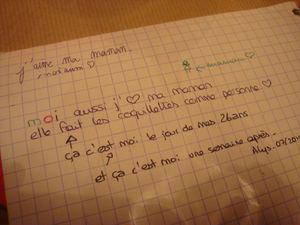 j'aime ma maman.
moi aussi ♡
← maman ♡
moi aussi j'♡ ma maman
elle fait les coquillettes comme personne ♡
ça c'est moi le jour de mes 26ans
et ça c'est moi une semaine après.
Alys. 07/201